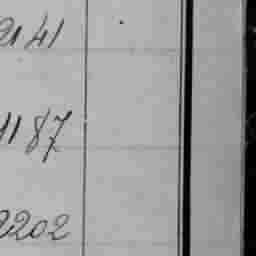 2141
1187
2202